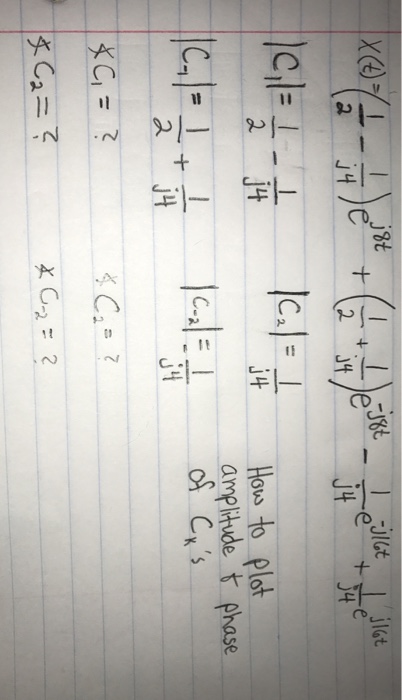 X(t) = (1/2 - 1/j4)e^j8t + (1/2 + 1/j4)e^-j8t - 1/j4 e^-j16t + 1/j4 e^j16t
|C₁| = 1/2 - 1/j4 |C₂| = 1/j4 How to plot
amplitude & phase
|C₋₁| = 1/2 + 1/j4 |C₋₂| = -1/j4 of Cₖ's
∡C₁ = ? ∡C₂ = ?
∡C₂ = ? ∡C₋₂ = ?